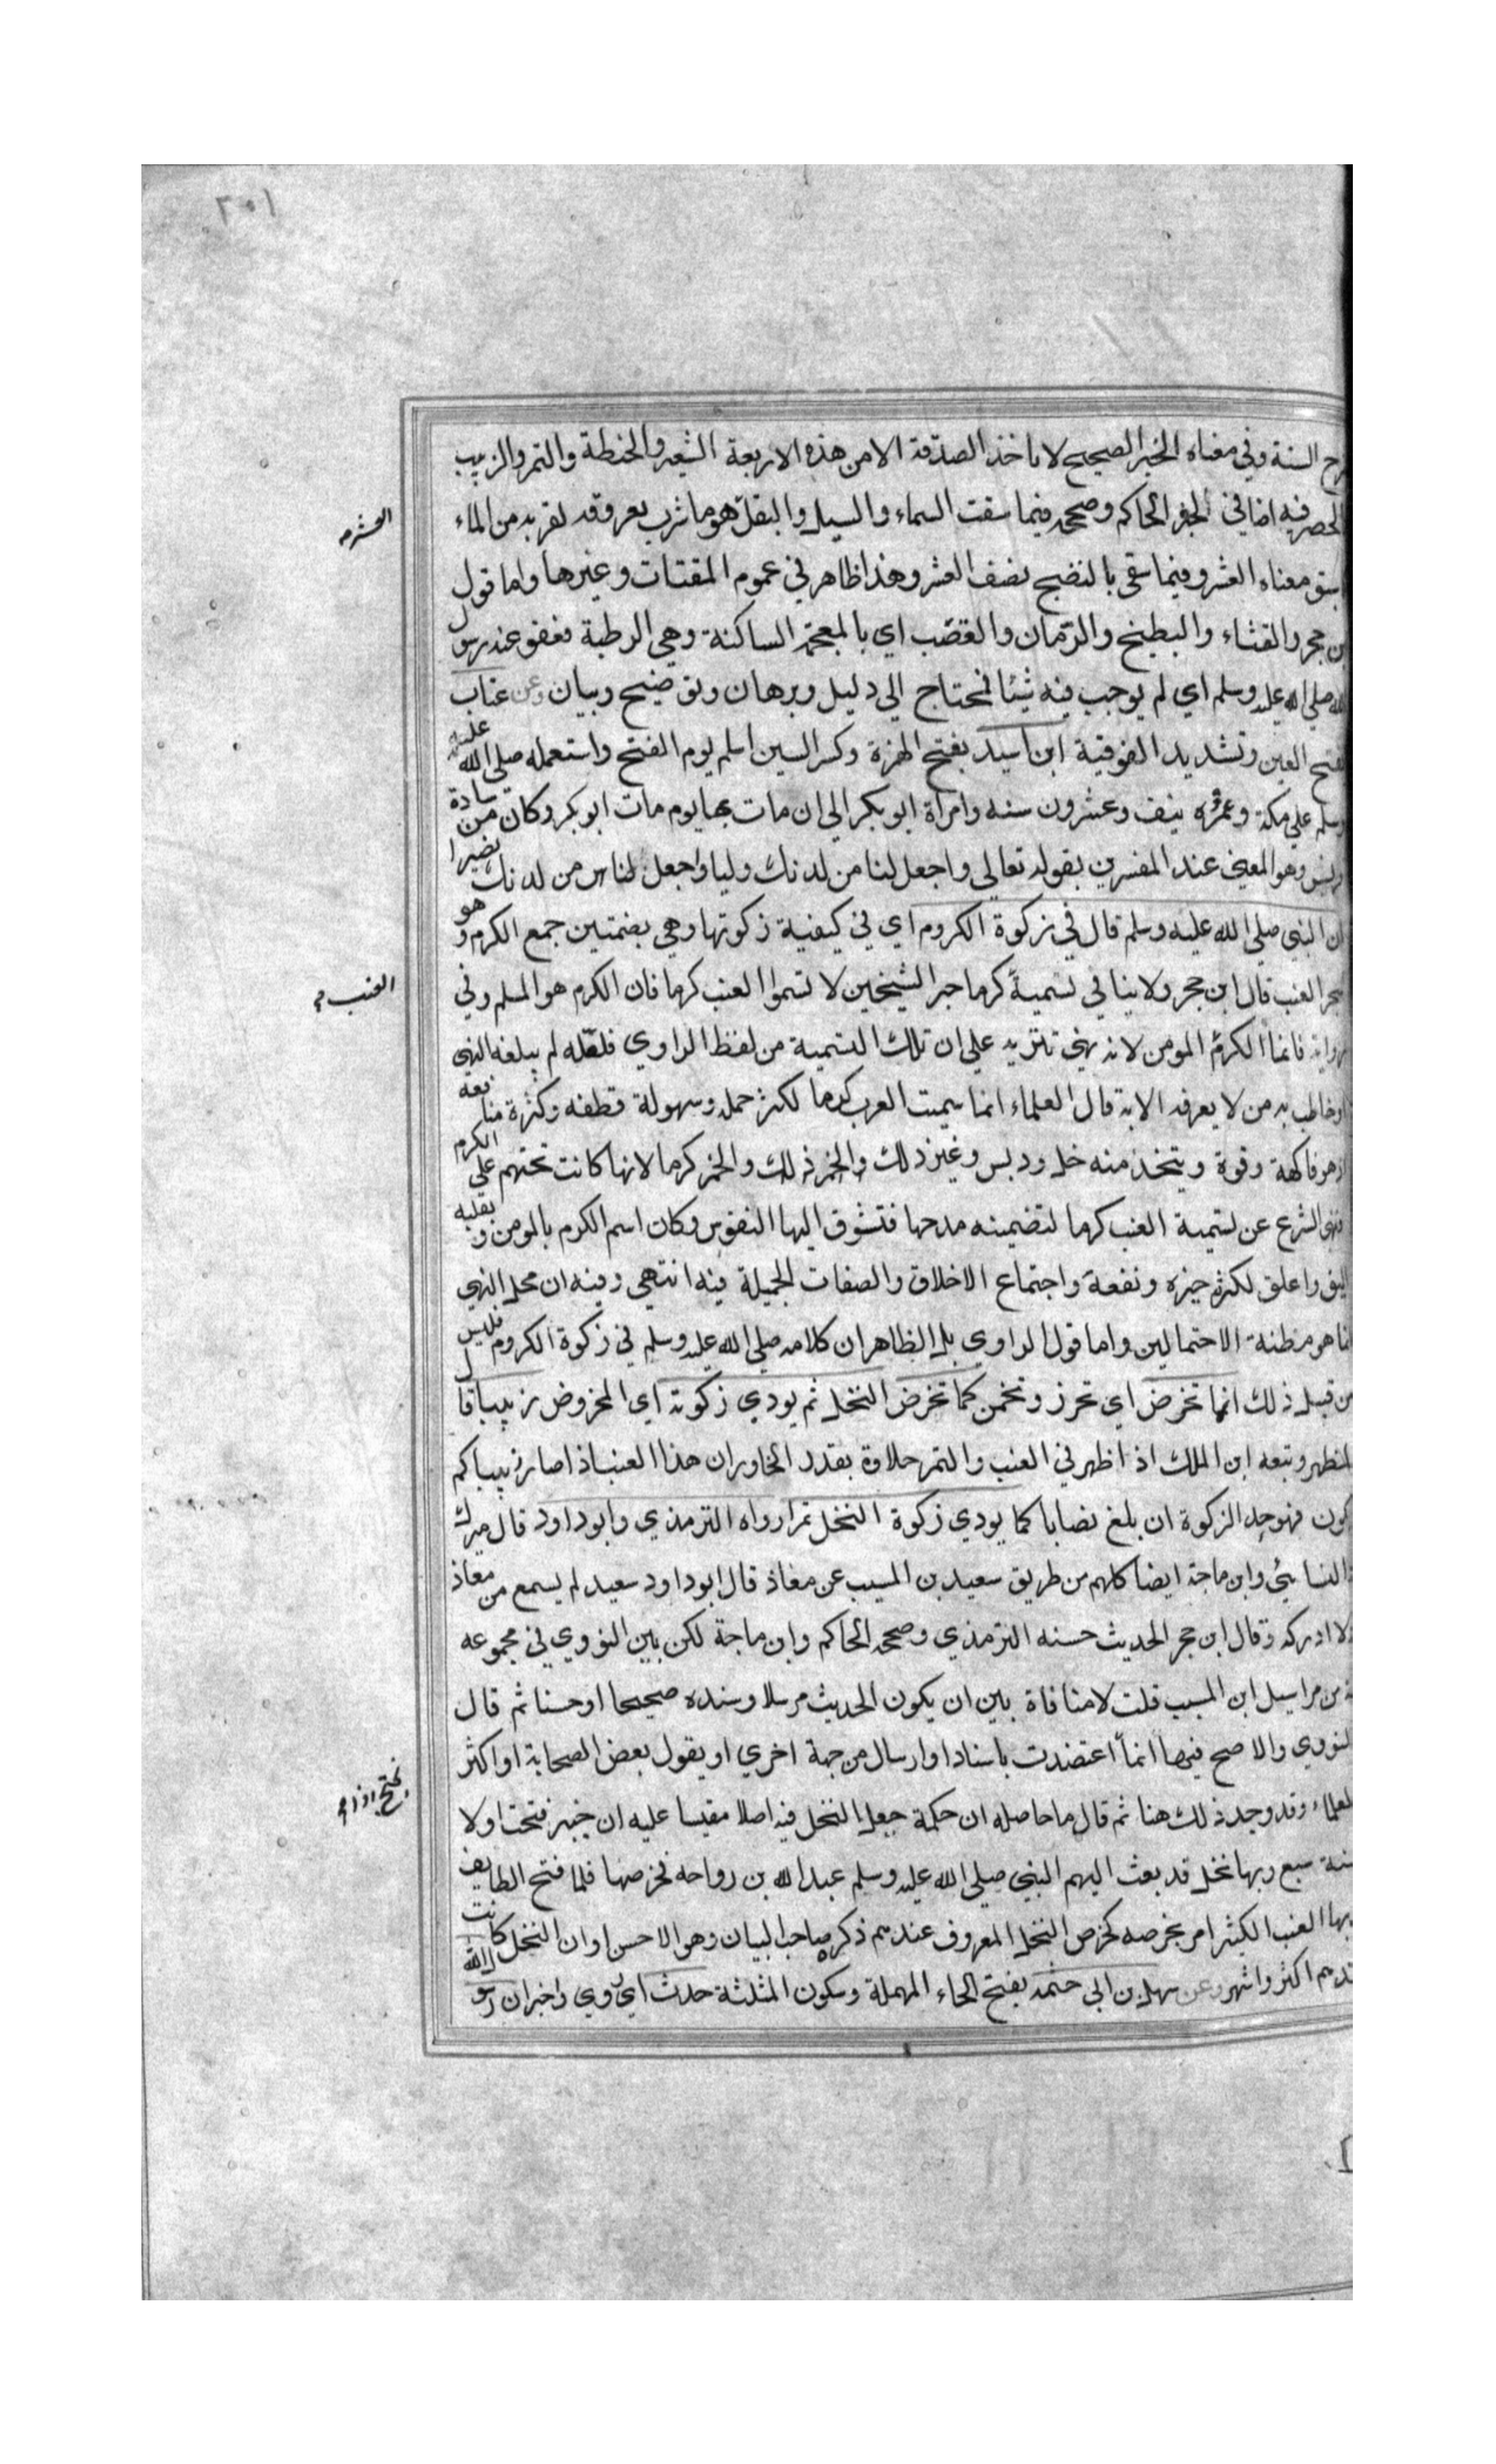 ٢٠١
رح السنة وفي معناه الخبر الصحيح لا ياخذ الصدقة الا من هذه الاربعة الشعير والحنطة والتمر والزبيب
الحصر فيه اضافي لخبر الحاكم وصححه فيما سقت السماء والسيل والبعل هو ما شرب بعروقه لقربه من الماء
العشر
سبق معناه العشر وفيما سقى بالنضح نصف العشر وهذا ظاهر في عموم المقتات وغيرها واما قول
بن حجر والقثاء والبطيخ والرمان والقضب اي بالمعجمة الساكنة وهي الرطبة فعفو عنه رسول
الله صلي الله عليه وسلم اي لم يوجب فيه شيئا فمحتاج الي دليل وبرهان وتوضيح وبيان وعن عتاب
بفتح العين وتشديد الفوقية ابن اسيد بفتح الهمزة وكسر السين اسلم يوم الفتح واستعمله صلي الله عليه
وسلم علي مكة وعمره نيف وعشرون سنه وامراة ابو بكر الي ان مات بها يوم مات ابو بكر وكان من سادة
قريش وهو المعني عند المفسرين بقوله تعالي واجعل لنا من لدنك وليا واجعل لنا من لدنك نصيرا
ان النبي صلي الله عليه وسلم قال في زكوة الكروم اي في كيفية زكوتها وهي بضمتين جمع الكرم وهو
شجر العنب قال ابن حجر ولا ينافي تسمية كرما خبر الشيخين لا تسموا العنب كرما فان الكرم هو المسلم وفي
العنب
رواية فانما الكرم المومن لانه نهي تنزيه علي ان تلك التسمية من لفظ الراوي فلعله لم يبلغه النهي
او خاطب به من لا يعرفه الا به قال العلماء انما سميت العرب كرما لكثر حمله وسهولة قطفه وكثرة منافعه
اذ هو فاكهة وقوة ويتخذ منه خل ودبس وغير ذلك والخمر كذلك والخمر كرما لانها كانت تحثهم علي الكرم
فنهي الشرع عن تسمية العنب كرما لتضمينه مدحها فتشوق اليها النفوس وكان اسم الكرم بالمومن وبقلبه
اليق واعلق لكثرة خيره ونفعه واجتماع الاخلاق والصفات الجميلة فيه انتهي وفيه ان محل النهي
انما هو مظنة الاحتمالين واما قول الراوي بل الظاهر ان كلامه صلي الله عليه وسلم في زكوة الكروم فليس
من قبيل ذلك انما تخرض اي تحرز وتخمن كما تخرض النخل ثم يودي زكوته اي المخروض زبيبا قال
المظهر وتبعه ابن الملك اذا ظهر في العنب والتمر حلاوة يقدر الخاور ان هذا العنب اذا صار زبيبا كم
يكون فهو حد الزكوة ان بلغ نصابا كما يودي زكوة النخل تمرا رواه الترمذي وابو داود قال ميرك
والنسائي وابن ماجة ايضا كلهم من طريق سعيد بن المسيب عن معاذ قال ابو داود سعيد لم يسمع من معاذ
ولا ادركه وقال ابن حجر الحديث حسنه الترمذي وصححه الحاكم وابن ماجة لكن بين النووي في مجموعه
انه من مراسيل ابن المسيب قلت لا منافاة بين ان يكون الحديث مرسلا وسنده صحيحا او حسنا ثم قال
النووي والاصح فيها انما اعتضدت باسناد او ارسال من جهة اخري او يقول بعض الصحابة او اكثر
العلماء وقد وجد ذلك هنا ثم قال ما حاصله ان حكمة جعل النخل فيه اصلا مقيسا عليه ان خيبر فتحت اولا
سنة سبع وبها نخل قد بعث اليهم النبي صلي الله عليه وسلم عبد الله بن رواحه فخرصها فلما فتح الطايف
وبها العنب الكثير امر بخرصه كخرص النخل المعروف عندهم ذكره صاحب البيان وهو الاحسن او ان النخل كانت
عندهم اكثر واشهر وعن سهل بن ابي حثمه بفتح الحاء المهملة وسكون المثلثة حدث اي روي واخبر ان رسول الله